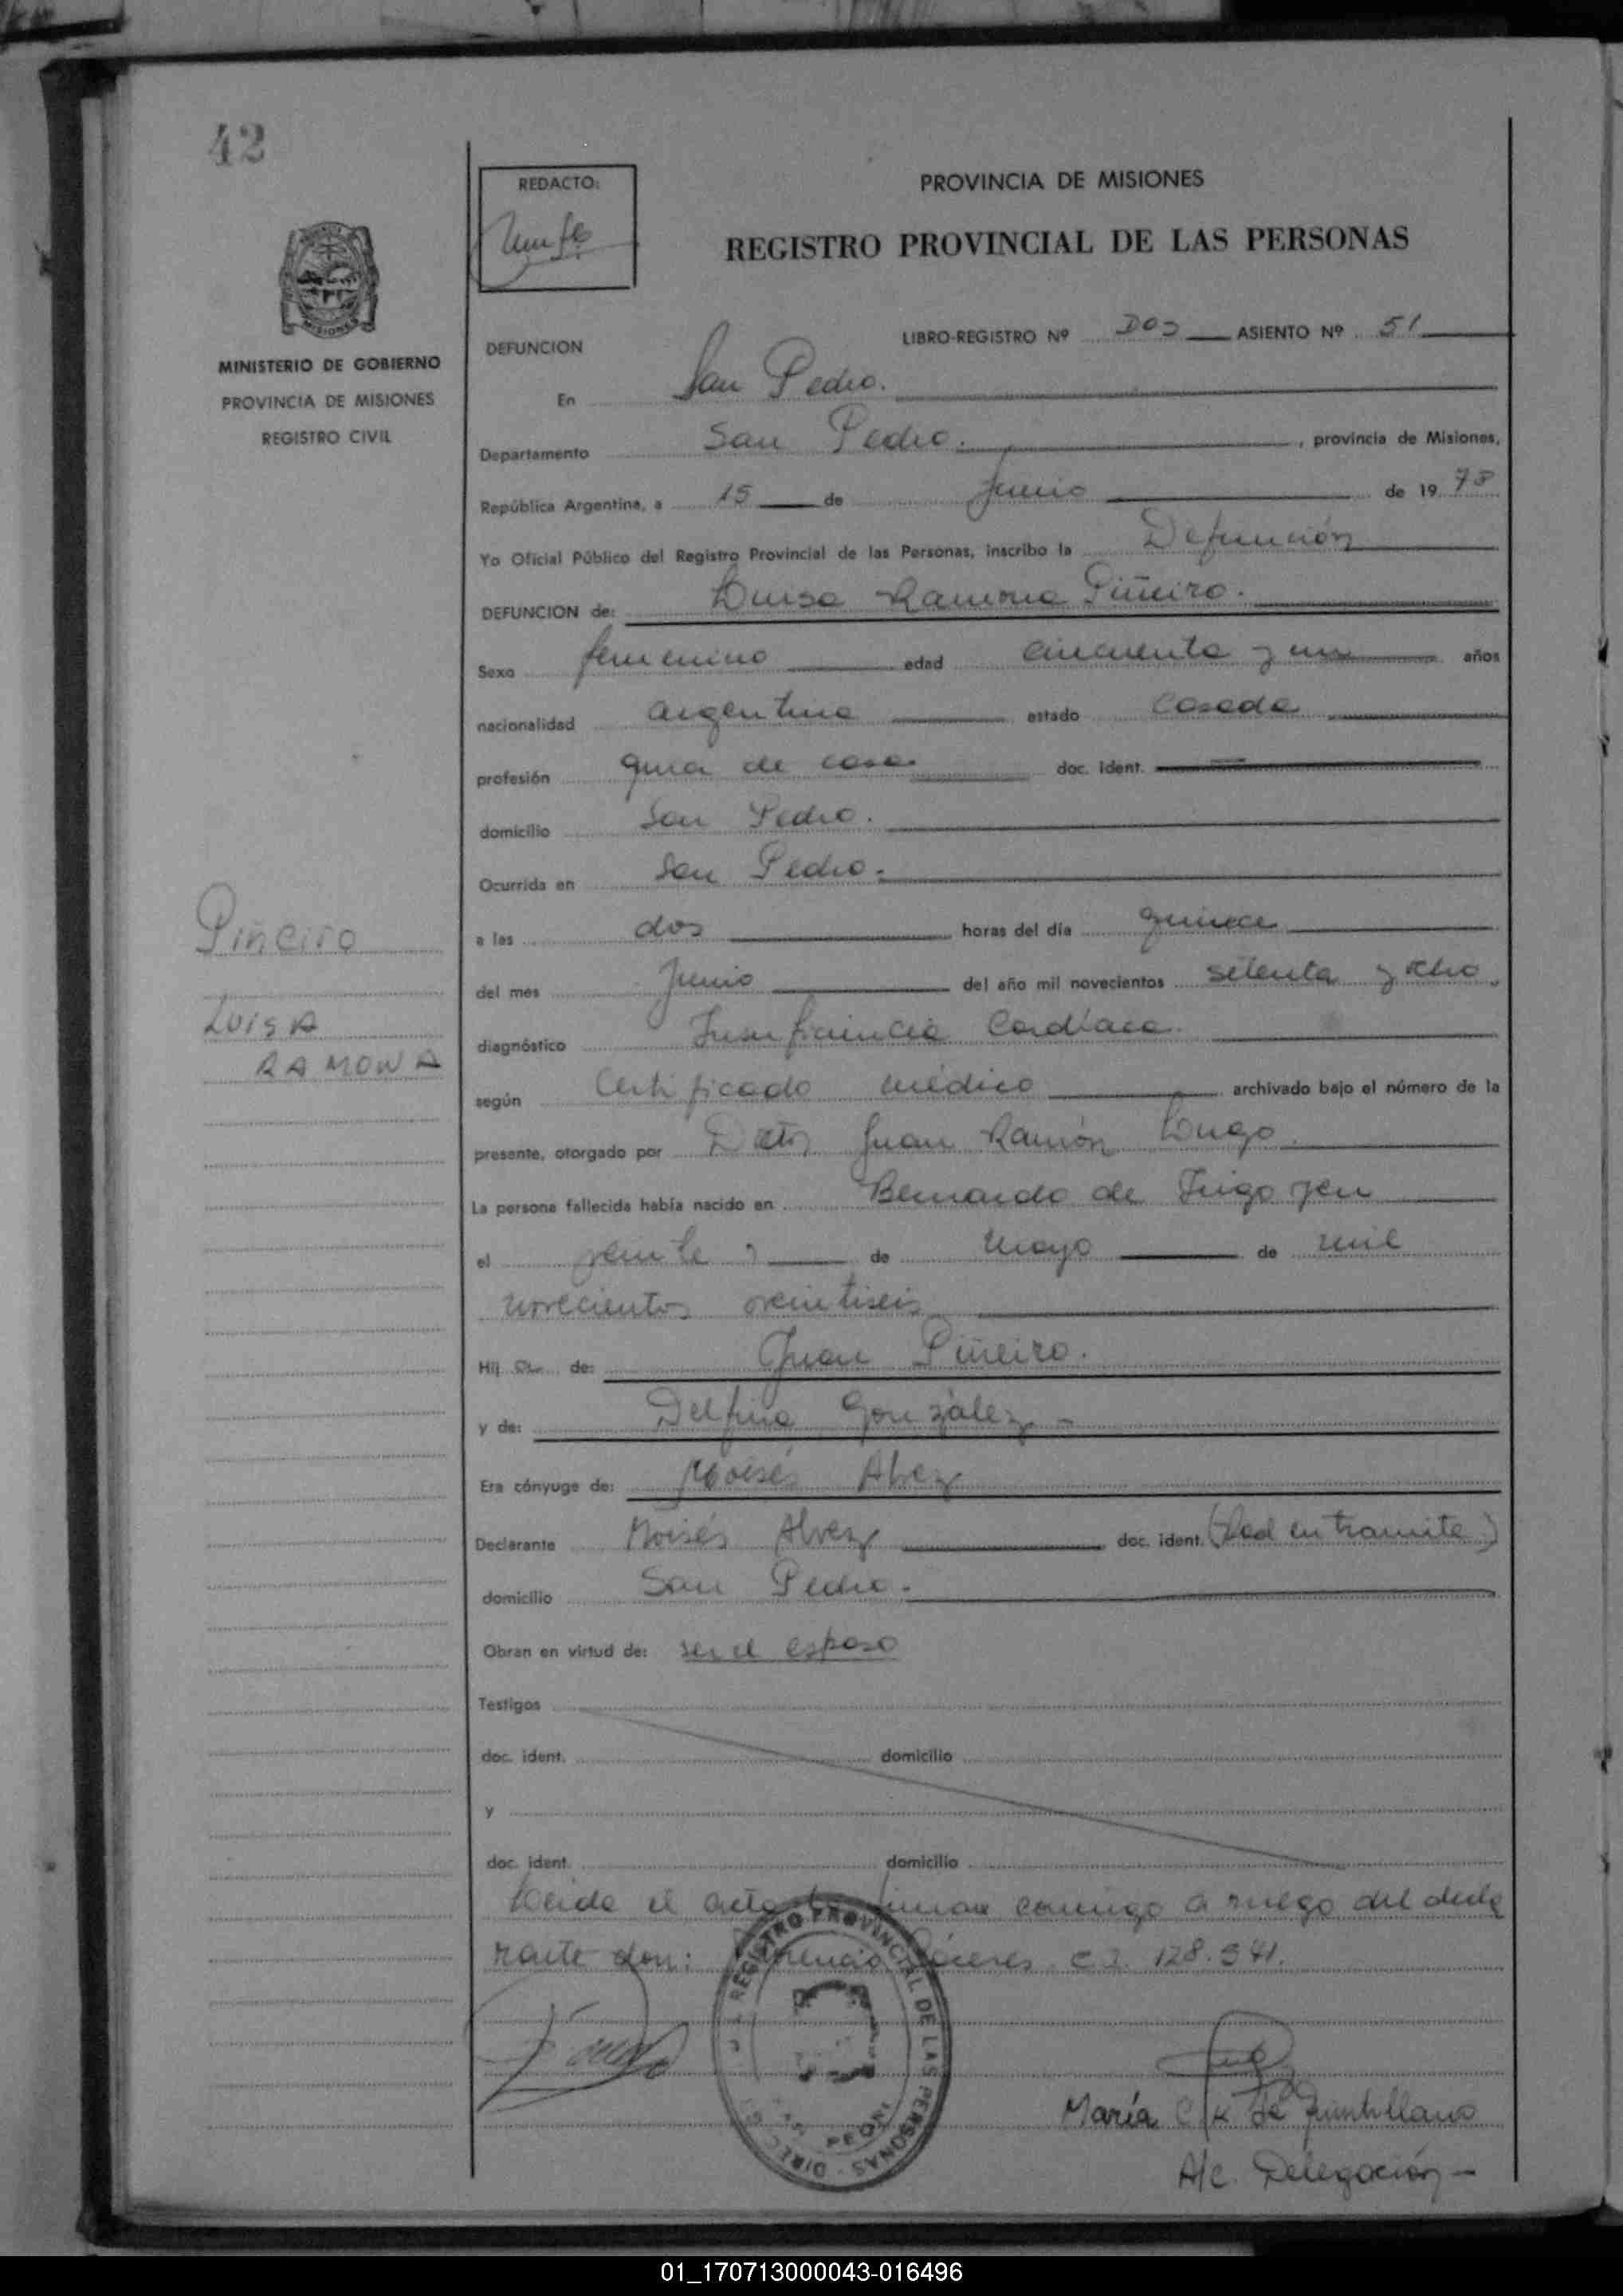 42
REDACTO:
PROVINCIA DE MISIONES
REGISTRO PROVINCIAL DE LAS PERSONAS
MISIONES
MINISTERIO DE GOBIERNO
PROVINCIA DE MISIONES
REGISTRO CIVIL
LIBRO-REGISTRO Nº Dos ASIENTO Nº 51
DEFUNCION
En San Pedro.
Departamento San Pedro. , provincia de Misiones,
República Argentina, a 15 de Junio de 19 78
Yo Oficial Público del Registro Provincial de las Personas, inscribo la Defunción
DEFUNCION de: Luisa Ramona Piñeiro.
Sexo femenino edad cincuenta y un años
nacionalidad argentina estado casada
profesión de casa doc. ident.
domicilio San Pedro.
Ocurrida en San Pedro.
a las dos horas del día quince
del mes Junio del año mil novecientos setenta y ocho
diagnóstico Insuficiencia Cardíaca.
según Certificado médico archivado bajo el número de la
presente, otorgado por Juan Ramón Lugo.
La persona fallecida había nacido en Bernardo de Irigoyen
el veinte de mayo de mil
novecientos veintiseis
Hij de: Juan Piñeiro.
y de: Delfina González
Era cónyuge de: Moisés Alvez
Declarante Moisés Alvez doc. ident. (Ced en tramite)
domicilio San Pedro.
Obran en virtud de: ser el esposo
Testigos
doc. ident. domicilio
y
doc. ident. domicilio
Leida el acta firma conmigo a ruego del decla
rante don: C.I. 128.541.
Piñeiro
LUISA
RAMONA
REGISTRO PROVINCIAL DE LAS PERSONAS
María C K de
A/c. Delegación
01_170713000043-016496